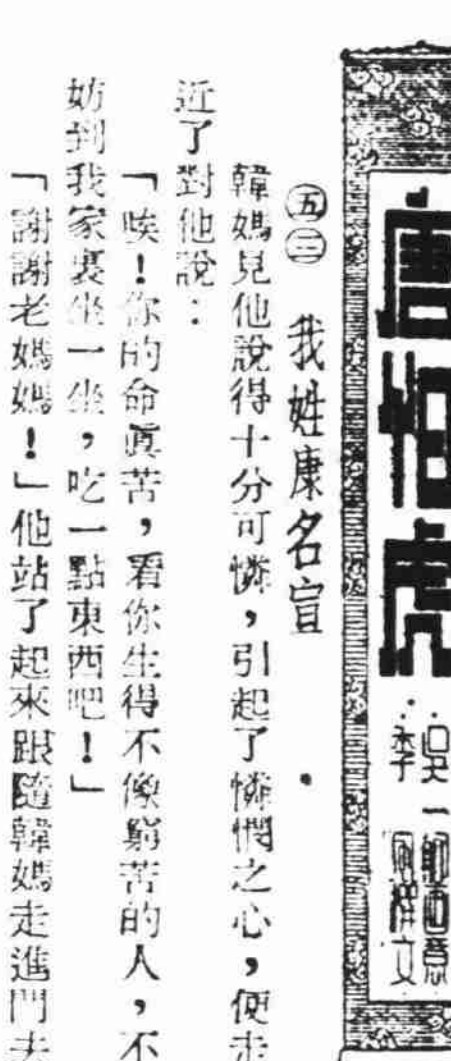 唐伯虎
吳一鶚畫意
李凡禪文
㊄㊂ 我姓康名宣
韓媽見他說得十分可憐，引起了憐憫之心，便走
近了對他說：
「唉！你的命眞苦，看你生得不像窮苦的人，不
妨到我家裏坐一坐，吃一點東西吧！」
「謝謝老媽媽！」他站了起來跟隨韓媽走進門去